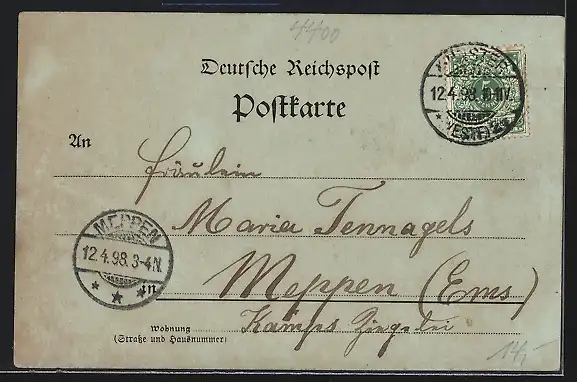 4400
Deutsche Reichspost
Postkarte
MÜNSTER
12.4.98.
(WESTF)
An
Fräulein
Maria Tennagels
MEPPEN
12.4.98.3-4N.
in Meppen (Ems)
Kamps Ziegelei
Wohnung
(Straße und Hausnummer)
14,-